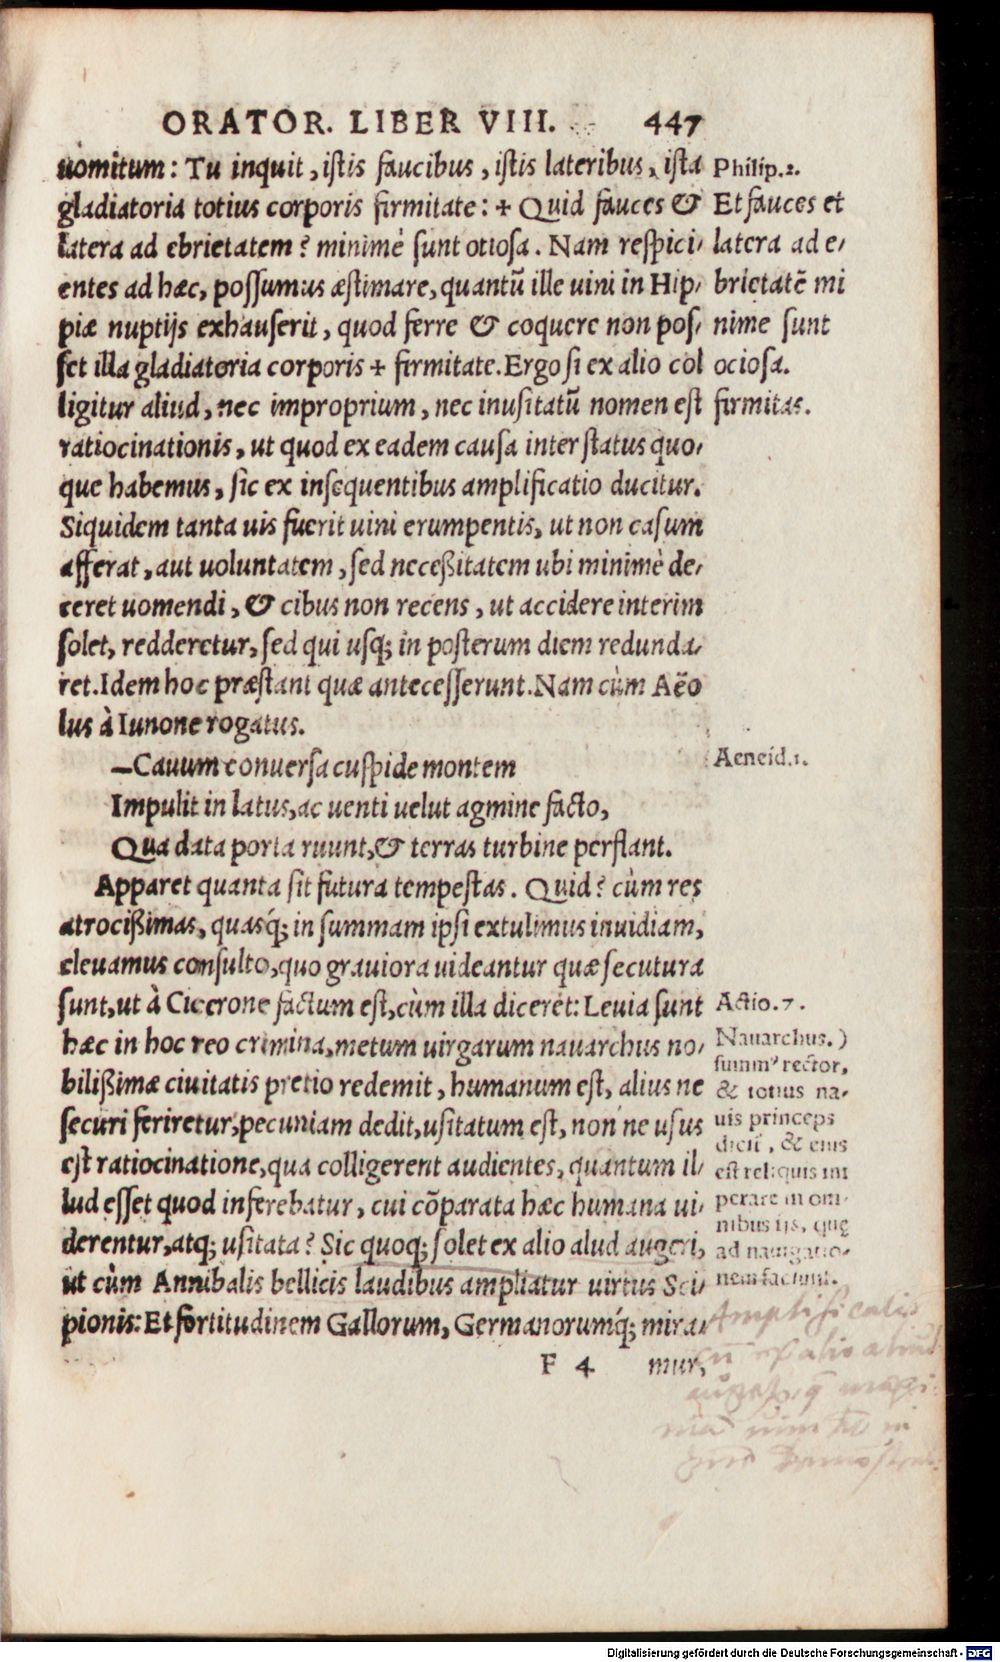 ORATOR. LIBER VIII. 447
uomitum: Tu inquit, istis faucibus, istis lateribus, ista
gladiatoria totius corporis firmitate: + Quid fauces &
latera ad ebrietatem? minimè sunt otiosa. Nam respici-
entes ad hæc, possumus æstimare, quantū ille uini in Hip-
piæ nuptijs exhauserit, quod ferre & coquere non pos-
set illa gladiatoria corporis + firmitate. Ergo si ex alio col
ligitur aliud, nec improprium, nec inusitatū nomen est
ratiocinationis, ut quod ex eadem causa inter status quo-
que habemus, sic ex insequentibus amplificatio ducitur.
Siquidem tanta uis fuerit uini erumpentis, ut non casum
afferat, aut uoluntatem, sed neceßitatem ubi minimè de-
ceret uomendi, & cibus non recens, ut accidere interim
solet, redderetur, sed qui usq; in posterum diem redunda-
ret. Idem hoc præstant quæ antecesserunt. Nam cùm Aëo
lus à Iunone rogatus.
—Cauum conuersa cuspide montem
Impulit in latus, ac uenti uelut agmine facto,
Qua data porta ruunt, & terras turbine perflant.
Apparet quanta sit futura tempestas. Quid? cùm res
atrocißimas, quasq́; in summam ipsi extulimus inuidiam,
eleuamus consulto, quo grauiora uideantur quæ secutura
sunt, ut à Cicerone factum est, cùm illa diceret: Leuia sunt
hæc in hoc reo crimina, metum uirgarum nauarchus no-
bilißimæ ciuitatis pretio redemit, humanum est, alius ne
securi feriretur, pecuniam dedit, usitatum est, non ne usus
est ratiocinatione, qua colligerent audientes, quantum il-
lud esset quod inferebatur, cui cōparata hæc humana ui-
derentur, atq; usitata? Sic quoq; solet ex alio alud augeri,
ut cùm Annibalis bellicis laudibus ampliatur uirtus Sci-
pionis: Et fortitudinem Gallorum, Germanorumq́; mira-
F 4 mur,
Philip. 2.
Et fauces et
latera ad e-
brietatē mi
nime sunt
ociosa.
firmitas.
Aeneid. 1.
Actio. 7.
Nauarchus.)
summ' rector,
& totius na-
uis princeps
dicit, & eius
est reliquis im
perare in om-
nibus ijs, quę
ad nauigatio-
nem faciunt.
Amplificatio
cū ex alio aliud
Digitalisierung gefördert durch die Deutsche Forschungsgemeinschaft - DFG